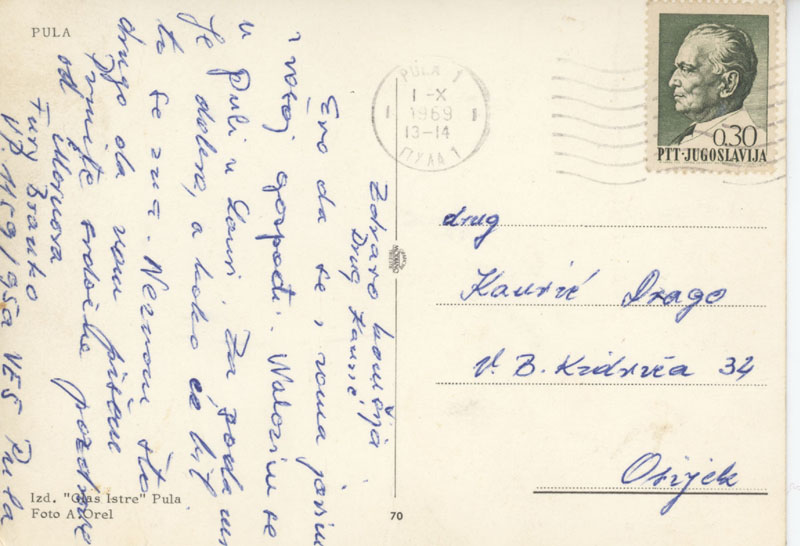 PULA
Zdravo komšija
Drug Kaurić
Evo da se i vama javim
i vašoj gospođi. Nalazim se
u Puli u Za sada mi
je dobro, a kako će bit
to se zna. Nemam što
drugo da vam pišem
primite srdačne pozdrave
od
Tury Branko
VP. 1159/95a Pula
Izd. "Glas Istre" Pula
Foto A. Orel
70
PULA 1
1-X
1969
13-14
ПУЛА 1
0.30
PTT-JUGOSLAVIJA
drug
Kaurić Drago
V B. Kidriča 34
Osijek